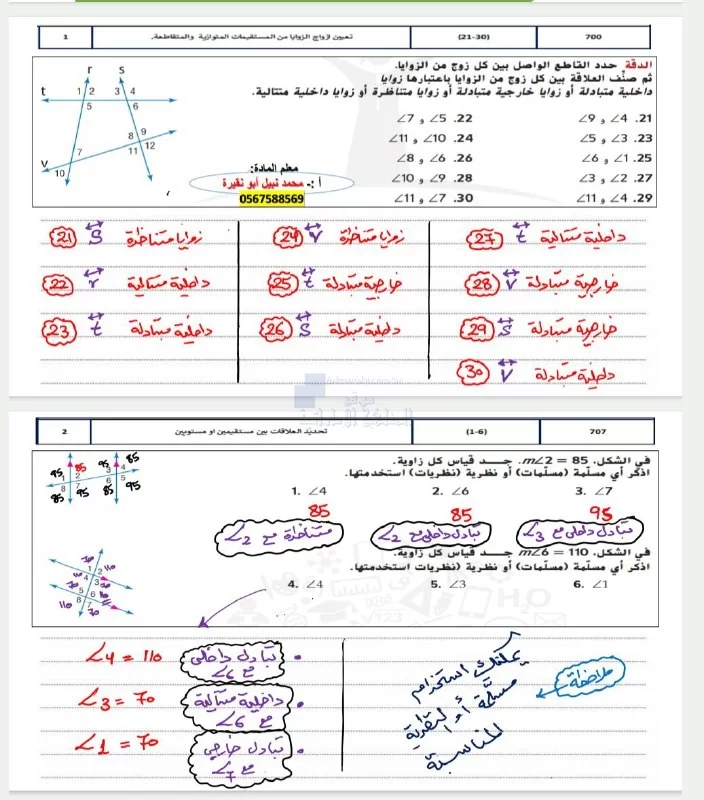 700 (21-30) تعيين أزواج الزوايا من المستقيمات المتوازية والمتقاطعة. 1
الدقة حدد القاطع الواصل بين كل زوج من الزوايا.
ثم صنّف العلاقة بين كل زوج من الزوايا باعتبارها زوايا
داخلية متبادلة أو زوايا خارجية متبادلة أو زوايا متناظرة أو زوايا داخلية متتالية.
21. ∠4 و ∠9 22. ∠5 و ∠7
23. ∠3 و ∠5 24. ∠10 و ∠11
25. ∠1 و ∠6 26. ∠6 و ∠8
27. ∠2 و ∠3 28. ∠9 و ∠10
29. ∠4 و ∠11 30. ∠7 و ∠11
r s
t 1 2 3 4
5 6
8 9
7 11 12
v
10
معلم المادة:
أ :- محمد نبيل أبو نقيرة
0567588569
27 t داخلية متتالية 24 v زوايا متناظرة 21 s زوايا متناظرة
28 v خارجية متبادلة 25 t خارجية متبادلة 22 r داخلية متتالية
29 s خارجية متبادلة 26 s داخلية متبادلة 23 t داخلية متبادلة
30 v داخلية متبادلة
موقع
المناهج الإماراتية
707 (1-6) تحديد العلاقات بين مستقيمين أو مستويين 2
في الشكل، m∠2 = 85. جد قياس كل زاوية.
اذكر أي مسلّمة (مسلّمات) أو نظرية (نظريات) استخدمتها.
1. ∠4 2. ∠6 3. ∠7
85 85 95
متناظرة مع ∠2 تبادل داخلي مع ∠2 تبادل داخلي مع ∠3
95 85 95 85
1 2 3 4
8 7 6 5
85 95 85 95
في الشكل، m∠6 = 110. جد قياس كل زاوية.
اذكر أي مسلّمة (مسلّمات) أو نظرية (نظريات) استخدمتها.
4. ∠4 5. ∠3 6. ∠1
70 110
1 2
4 3
110 70
5 6
8 7
110 70
∠4 = 110 تبادل داخلي مع ∠6
∠3 = 70 داخلية متتالية مع ∠6
∠1 = 70 تبادل خارجي مع ∠7
ملاحظة
يمكنك استخدام
مسلّمة أو نظرية
المناسبة